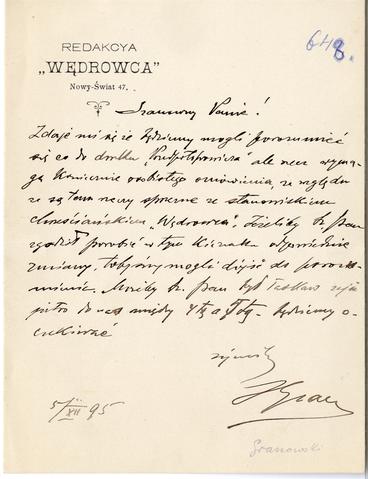 648.
REDAKCYA
„WĘDROWCA”
Nowy-Świat 47.
Szanowny Panie!
Zdaje mi się że będziemy mogli porozumieć
się co do druku ale rzecz wyma-
ga koniecznie osobistego omówienia, ze względu
że są tam rzeczy sprzeczne ze stanowiskiem
chrześciańskiem „Wędrowca”. Jeżeliby Sz. Pan
zgodził porobić w tym kierunku odpowiednie
zmiany, tobyśmy mogli dojść do porozu-
mienia. Możeby Sz. Pan był łaskaw
jutro do nas między 4tą a 6tą. Będziemy o-
czekiwać
5/XII 95
Granowski